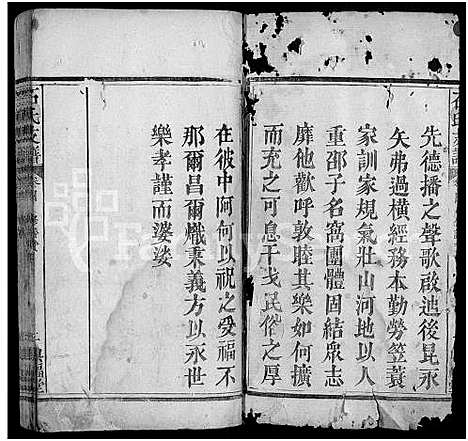 先德播之聲歌啟迪後昆永
矢弗過橫經務本勤勞笠蓑
家訓家規氣壯山河地以人
重邵子名窩團體固結眾志
靡他歡呼敦睦其樂如何擴
而充之可息干戈民俗之厚
在彼中阿何以祝之受福不
那爾昌爾熾秉義方以永世
樂孝謹而婆娑
石氏支譜